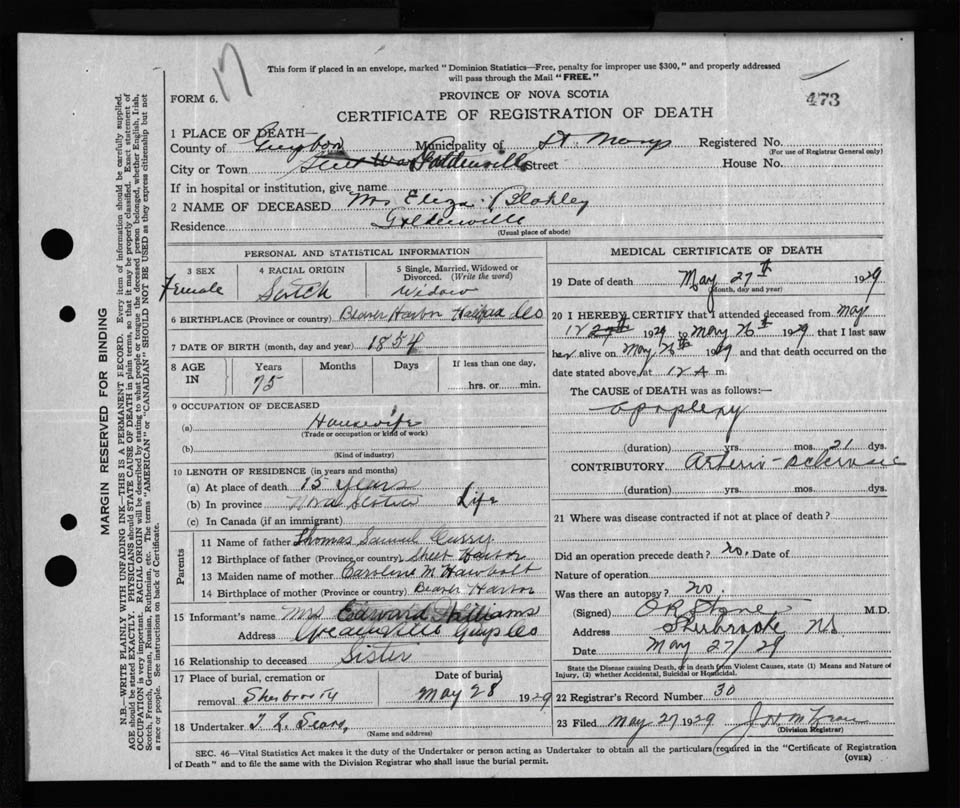 17
This form if placed in an envelope, marked "Dominion Statistics—Free, penalty for improper use $300," and properly addressed
will pass through the Mail "FREE."
FORM 6.
PROVINCE OF NOVA SCOTIA
473
CERTIFICATE OF REGISTRATION OF DEATH
1 PLACE OF DEATH—
County of Guysboro Municipality of St. Marys Registered No.
(For use of Registrar General only)
City or Town Goldenville Street House No.
If in hospital or institution, give name
2 NAME OF DECEASED Mrs Eliza Blakley
Residence Goldenville
(Usual place of abode)
PERSONAL AND STATISTICAL INFORMATION
3 SEX Female
4 RACIAL ORIGIN Scotch
5 Single, Married, Widowed or Divorced. (Write the word) Widow
6 BIRTHPLACE (Province or country) Beaver Harbor Halifax Co
7 DATE OF BIRTH (month, day and year) 1854
8 AGE IN Years 75 Months Days If less than one day, hrs. or min.
9 OCCUPATION OF DECEASED
(a) Housewife
(Trade or occupation or kind of work)
(b)
(Kind of industry)
10 LENGTH OF RESIDENCE (in years and months)
(a) At place of death 15 years
(b) In province Nova Scotia Life
(c) In Canada (if an immigrant)
Parents
11 Name of father Thomas Samuel Curry
12 Birthplace of father (Province or country) Sheet Harbor
13 Maiden name of mother Caroline M Hawbolt
14 Birthplace of mother (Province or country) Beaver Harbor
15 Informant's name Mrs Edward Williams
Address Guys Co
16 Relationship to deceased Sister
17 Place of burial, cremation or removal Sherbrooke
Date of burial May 28 1929
18 Undertaker
(Name and address)
MEDICAL CERTIFICATE OF DEATH
19 Date of death May 27th 1929
(Month, day and year)
20 I HEREBY CERTIFY that I attended deceased from May
12 1929 to May 26th 1929, that I last saw
her alive on May 26th 1929 and that death occurred on the
date stated above, at 12 A m.
The CAUSE of DEATH was as follows:—
apoplexy
(duration) yrs. mos. 21 dys.
CONTRIBUTORY Arterio-sclerosis
(duration) yrs. mos. dys.
21 Where was disease contracted if not at place of death?
Did an operation precede death? no. Date of
Nature of operation
Was there an autopsy? no.
(Signed) M.D.
Address Sherbrooke NS
Date May 27/29
State the Disease causing Death, or in death from Violent Causes, state (1) Means and Nature of
Injury, (2) whether Accidental, Suicidal or Homicidal.
22 Registrar's Record Number 30
23 Filed May 27 1929
(Division Registrar)
SEC. 46—Vital Statistics Act makes it the duty of the Undertaker or person acting as Undertaker to obtain all the particulars required in the "Certificate of Registration
of Death" and to file the same with the Division Registrar who shall issue the burial permit.
(OVER)
MARGIN RESERVED FOR BINDING
N.B.—WRITE PLAINLY WITH UNFADING INK—THIS IS A PERMANENT RECORD. Every item of information should be carefully supplied.
AGE should be stated EXACTLY. PHYSICIANS should STATE CAUSE OF DEATH in plain terms, so that it may be properly classified. Exact statement of
OCCUPATION is very important. RACIAL ORIGIN will be described by stating to what people or tongue the deceased person belonged, whether English, Irish,
Scotch, French, German, Russian, Ruthenian, etc. The terms "AMERICAN" or "CANADIAN" SHOULD NOT BE USED as they express citizenship but not
a race or people. See instructions on back of Certificate.